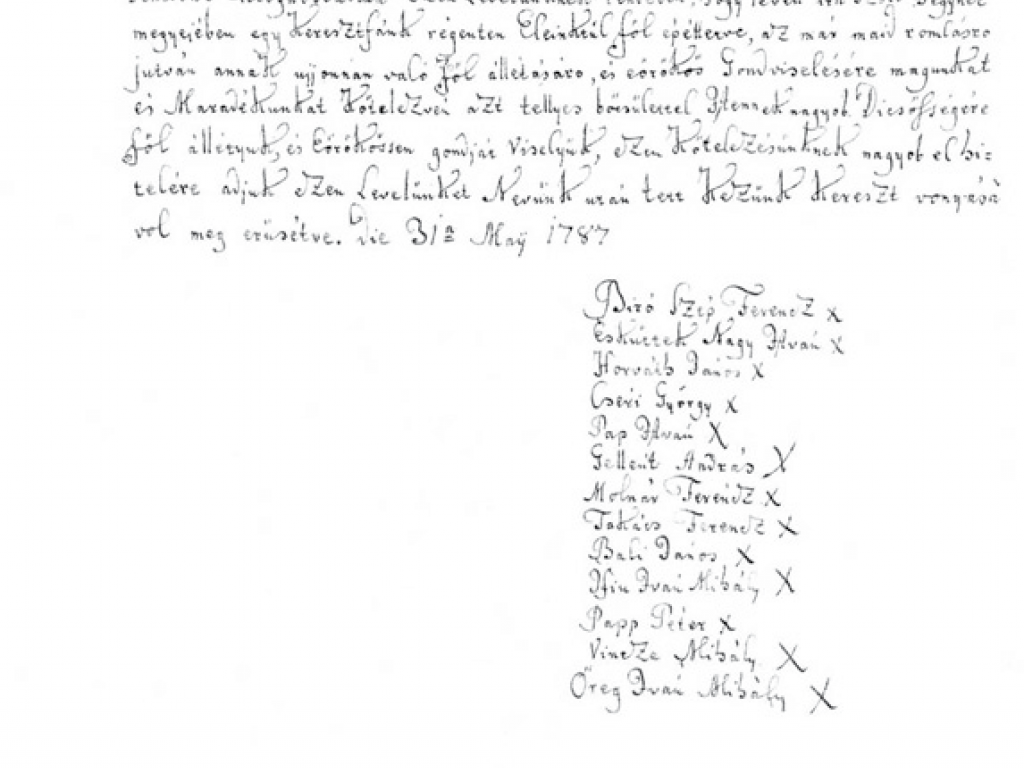 megyejében egy Keresztfánk régenten Eleinktül föl épéttetve, az már maid romlásro
jutván annak ujjonnan való föl álletásáro, és eörökös Gondviselésére magunkat
és Maradékunkat Kötelezvén azt tellyes böcsülettel Istennek nagyob Dicsősségére
föl állétyuk, és Eörökössen gondját Viselyük, ezen Kötelezésünknek nagyob el hi-
telére adjuk ezen Levelünket Nevünk után tett Kezünk Kereszt vonyásá
vol meg erüsétve. Die 31a Maÿ 1787
Biró Szép Ferencz x
Esküttek Nagy Istvań x
Horváth János x
Cseri György x
Pap Istvań X
Gellért András X
Molnár Ferencz x
Takács Ferencz X
Bali János X
Ifiu Iván Mihály X
Papp Péter x
Vincze Mihály X
Öreg Iván Mihály X